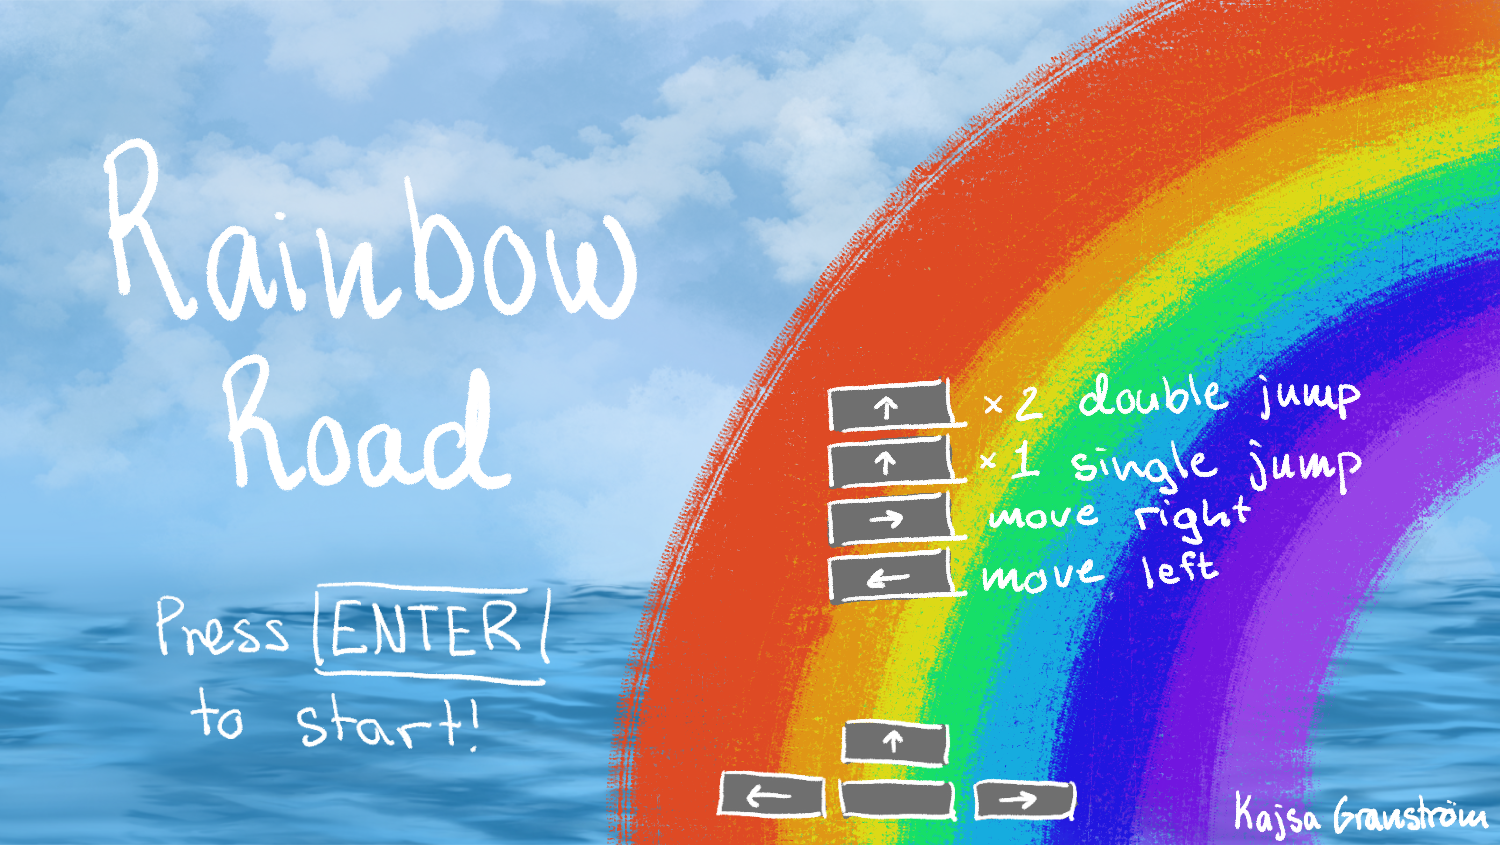 Rainbow
Road
Press ENTER
to start!
↑ ×2 double jump
↑ ×1 single jump
→ move right
← move left
↑
← →
Kajsa Granström